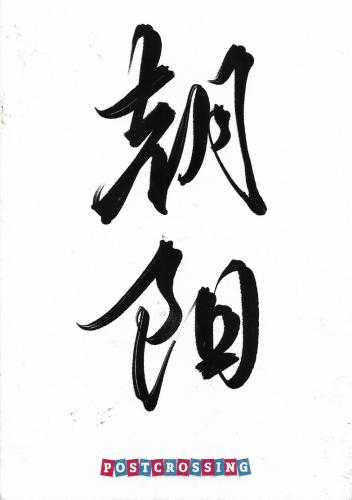 朝
阳
POSTCROSSING